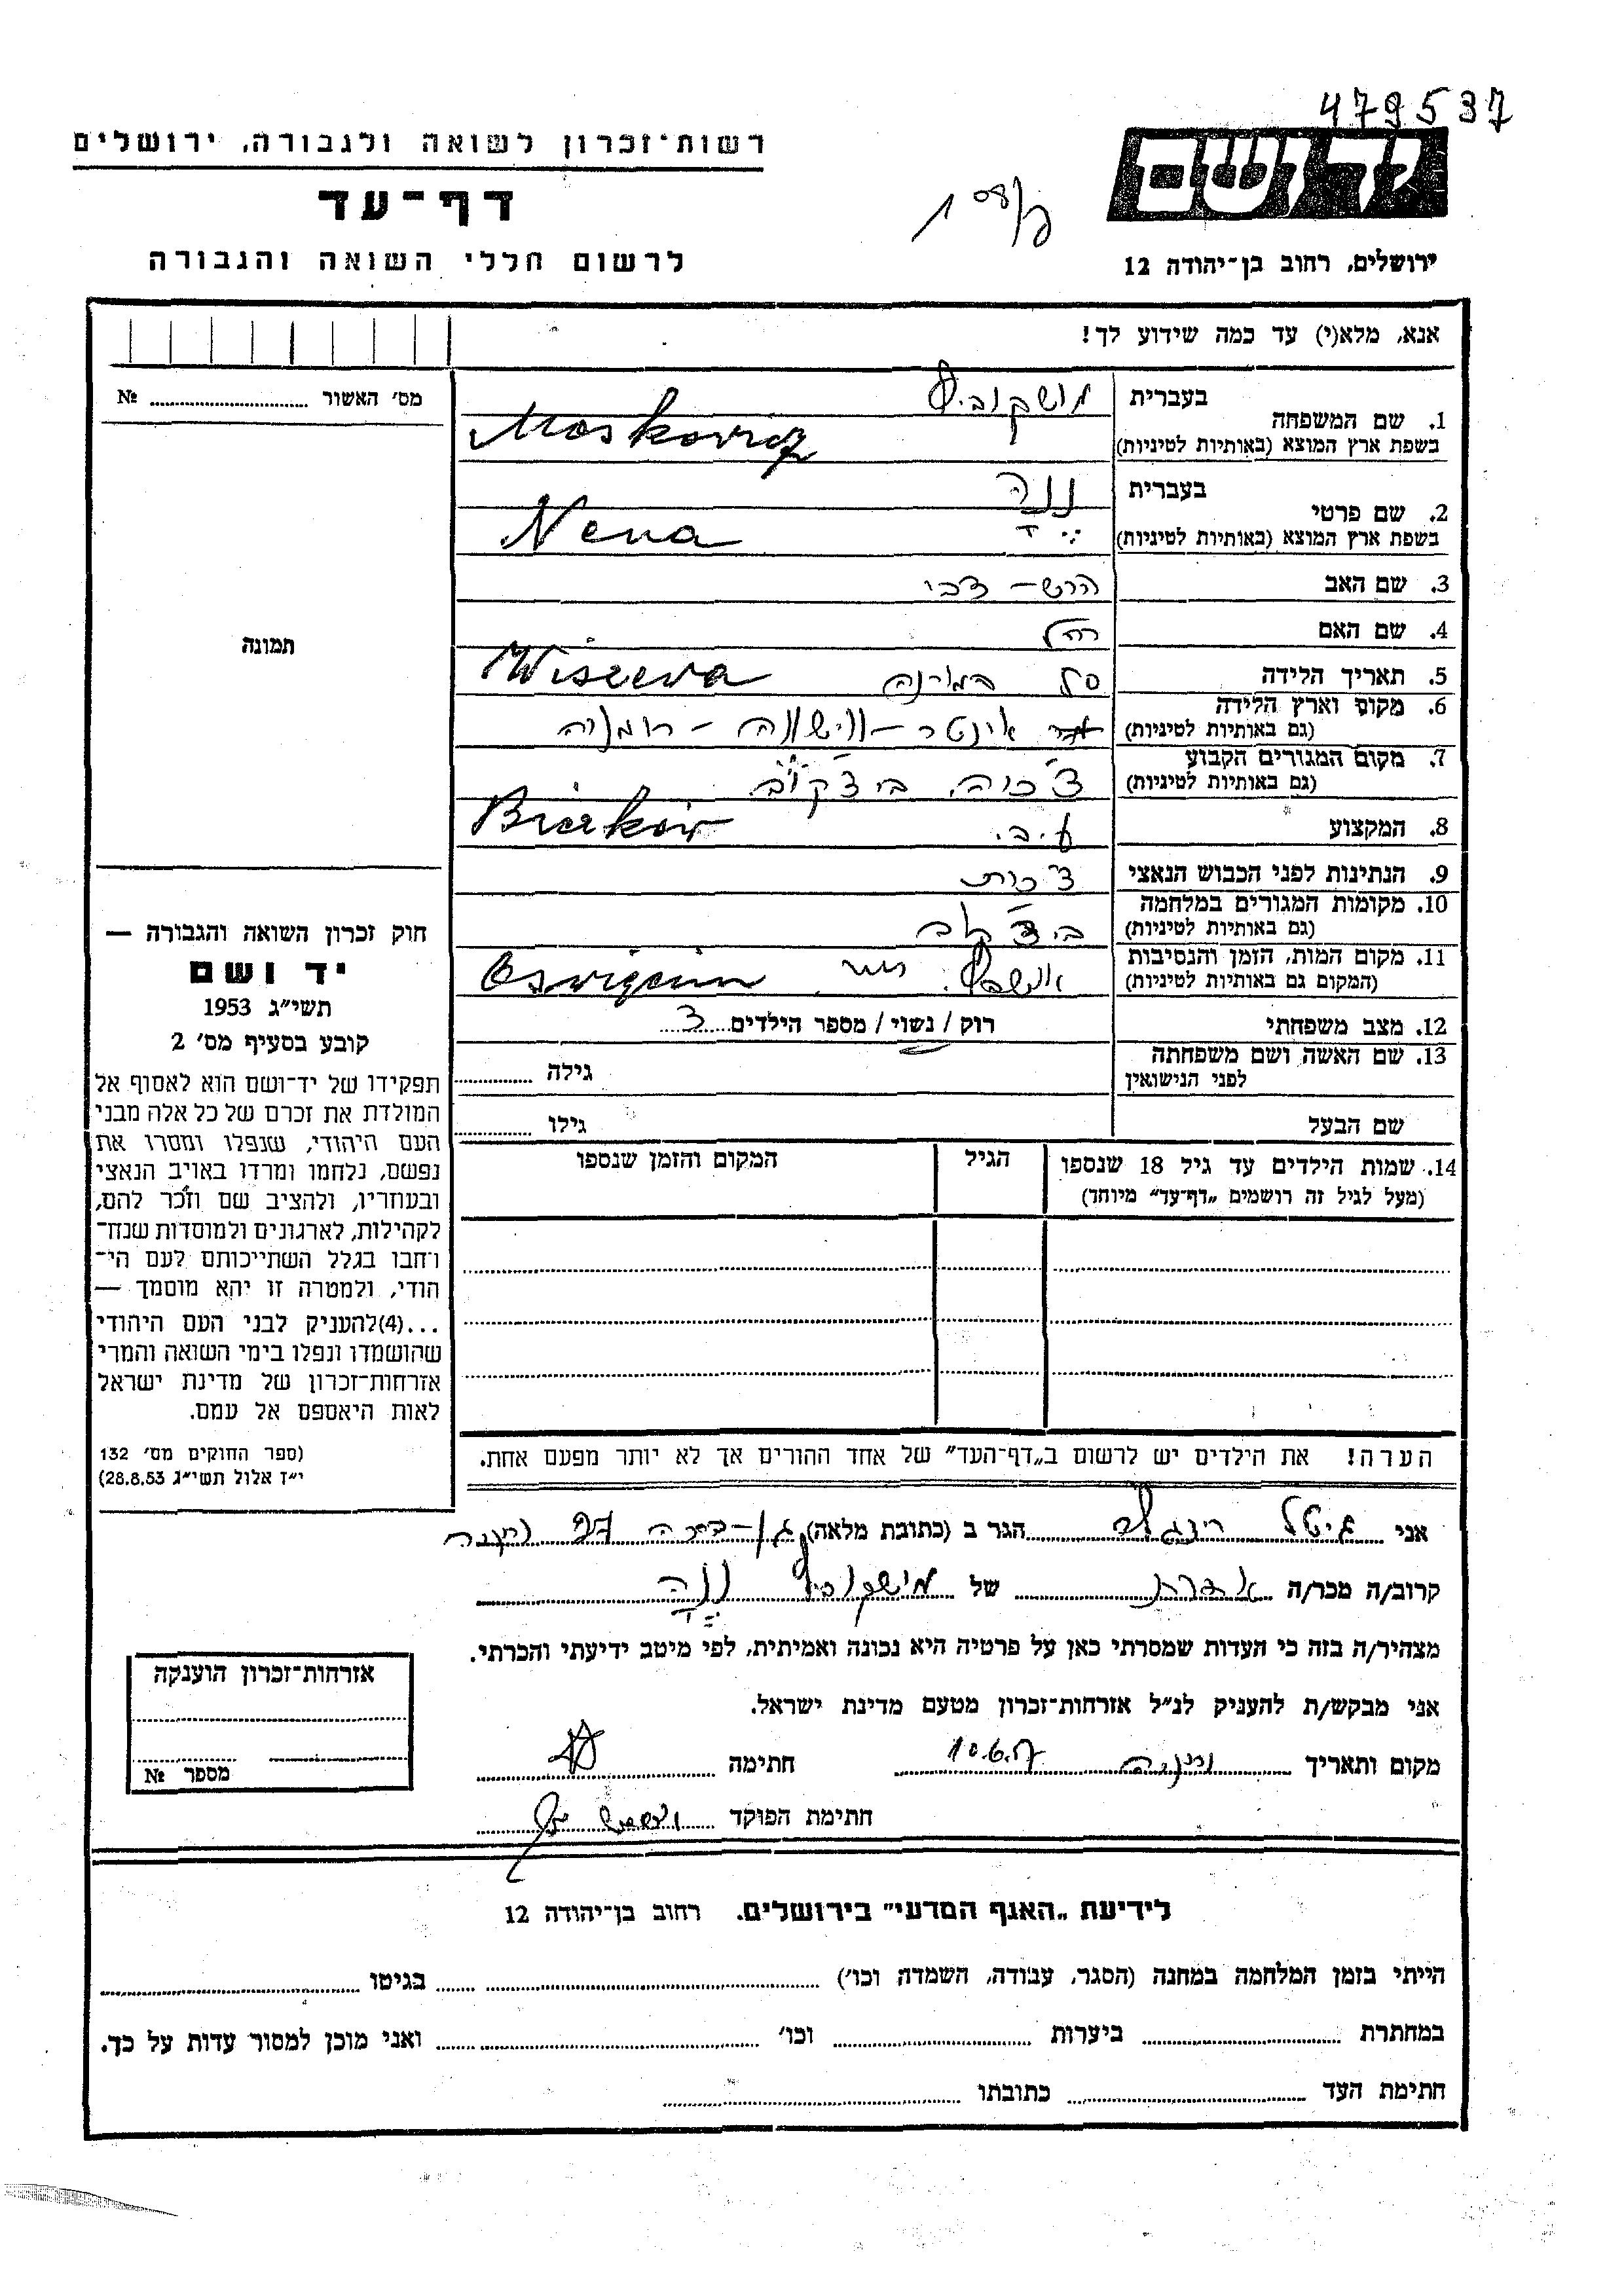 479537
יד ושם
רשות־זכרון לשואה ולגבורה, ירושלים
דף־עד
לרשום חללי השואה והגבורה
ירושלים, רחוב בן־יהודה 12
אנא, מלא(י) עד כמה שידוע לך!
מס׳ האשור № 
1. שם המשפחה בעברית מושקוביץ
בשפת ארץ המוצא (באותיות לטיניות) Moskovicz
2. שם פרטי בעברית ננה
בשפת ארץ המוצא (באותיות לטיניות) Nena
3. שם האב הרש – צבי
4. שם האם רחל
תמונה
5. תאריך הלידה
6. מקום וארץ הלידה Wiszeva
(גם באותיות לטיניות) רומניה
7. מקום המגורים הקבוע
(גם באותיות לטיניות) צ'כיה
8. המקצוע
9. הנתינות לפני הכבוש הנאצי צ'כית
10. מקומות המגורים במלחמה
(גם באותיות לטיניות)
11. מקום המות, הזמן והנסיבות
(המקום גם באותיות לטיניות) אושביץ
12. מצב משפחתי רוק / נשוי / מספר הילדים 3
13. שם האשה ושם משפחתה
לפני הנישואין גילה
שם הבעל גילו
14. שמות הילדים עד גיל 18 שנספו הגיל המקום והזמן שנספו
(מעל לגיל זה רושמים „דף־עד״ מיוחד)
הערה! את הילדים יש לרשום ב„דף־העד״ של אחד ההורים אך לא יותר מפעם אחת.
חוק זכרון השואה והגבורה —
יד ושם
תשי״ג 1953
קובע בסעיף מס׳ 2
תפקידו של יד־ושם הוא לאסוף אל
המולדת את זכרם של כל אלה מבני
העם היהודי, שנפלו ומסרו את
נפשם, נלחמו ומרדו באויב הנאצי
ובעוזריו, ולהציב שם וזכר להם,
לקהילות, לארגונים ולמוסדות שנח־
רבו בגלל השתייכותם לעם הי־
הודי, ולמטרה זו יהא מוסמך —
...(4) להעניק לבני העם היהודי
שהושמדו ונפלו בימי השואה והמרי
אזרחות־זכרון של מדינת ישראל
לאות היאספם אל עמם.
(ספר החוקים מס׳ 132
י״ז אלול תשי״ג 28.8.53)
אני גיטל הגר ב (כתובת מלאה)
קרוב/ה מכר/ה של מושקוביץ ננה
מצהיר/ה בזה כי העדות שמסרתי כאן על פרטיה היא נכונה ואמיתית, לפי מיטב ידיעתי והכרתי.
אני מבקש/ת להעניק לנ״ל אזרחות־זכרון מטעם מדינת ישראל.
מקום ותאריך נתניה 10.6.57 חתימה
חתימת הפוקד
אזרחות־זכרון הוענקה
מספר №
לידיעת „האגף המדעי״ בירושלים, רחוב בן־יהודה 12
הייתי בזמן המלחמה במחנה (הסגר, עבודה, השמדה וכו׳) בגיטו
במחתרת ביערות וכו׳ ואני מוכן למסור עדות על כך.
חתימת העד כתובתו